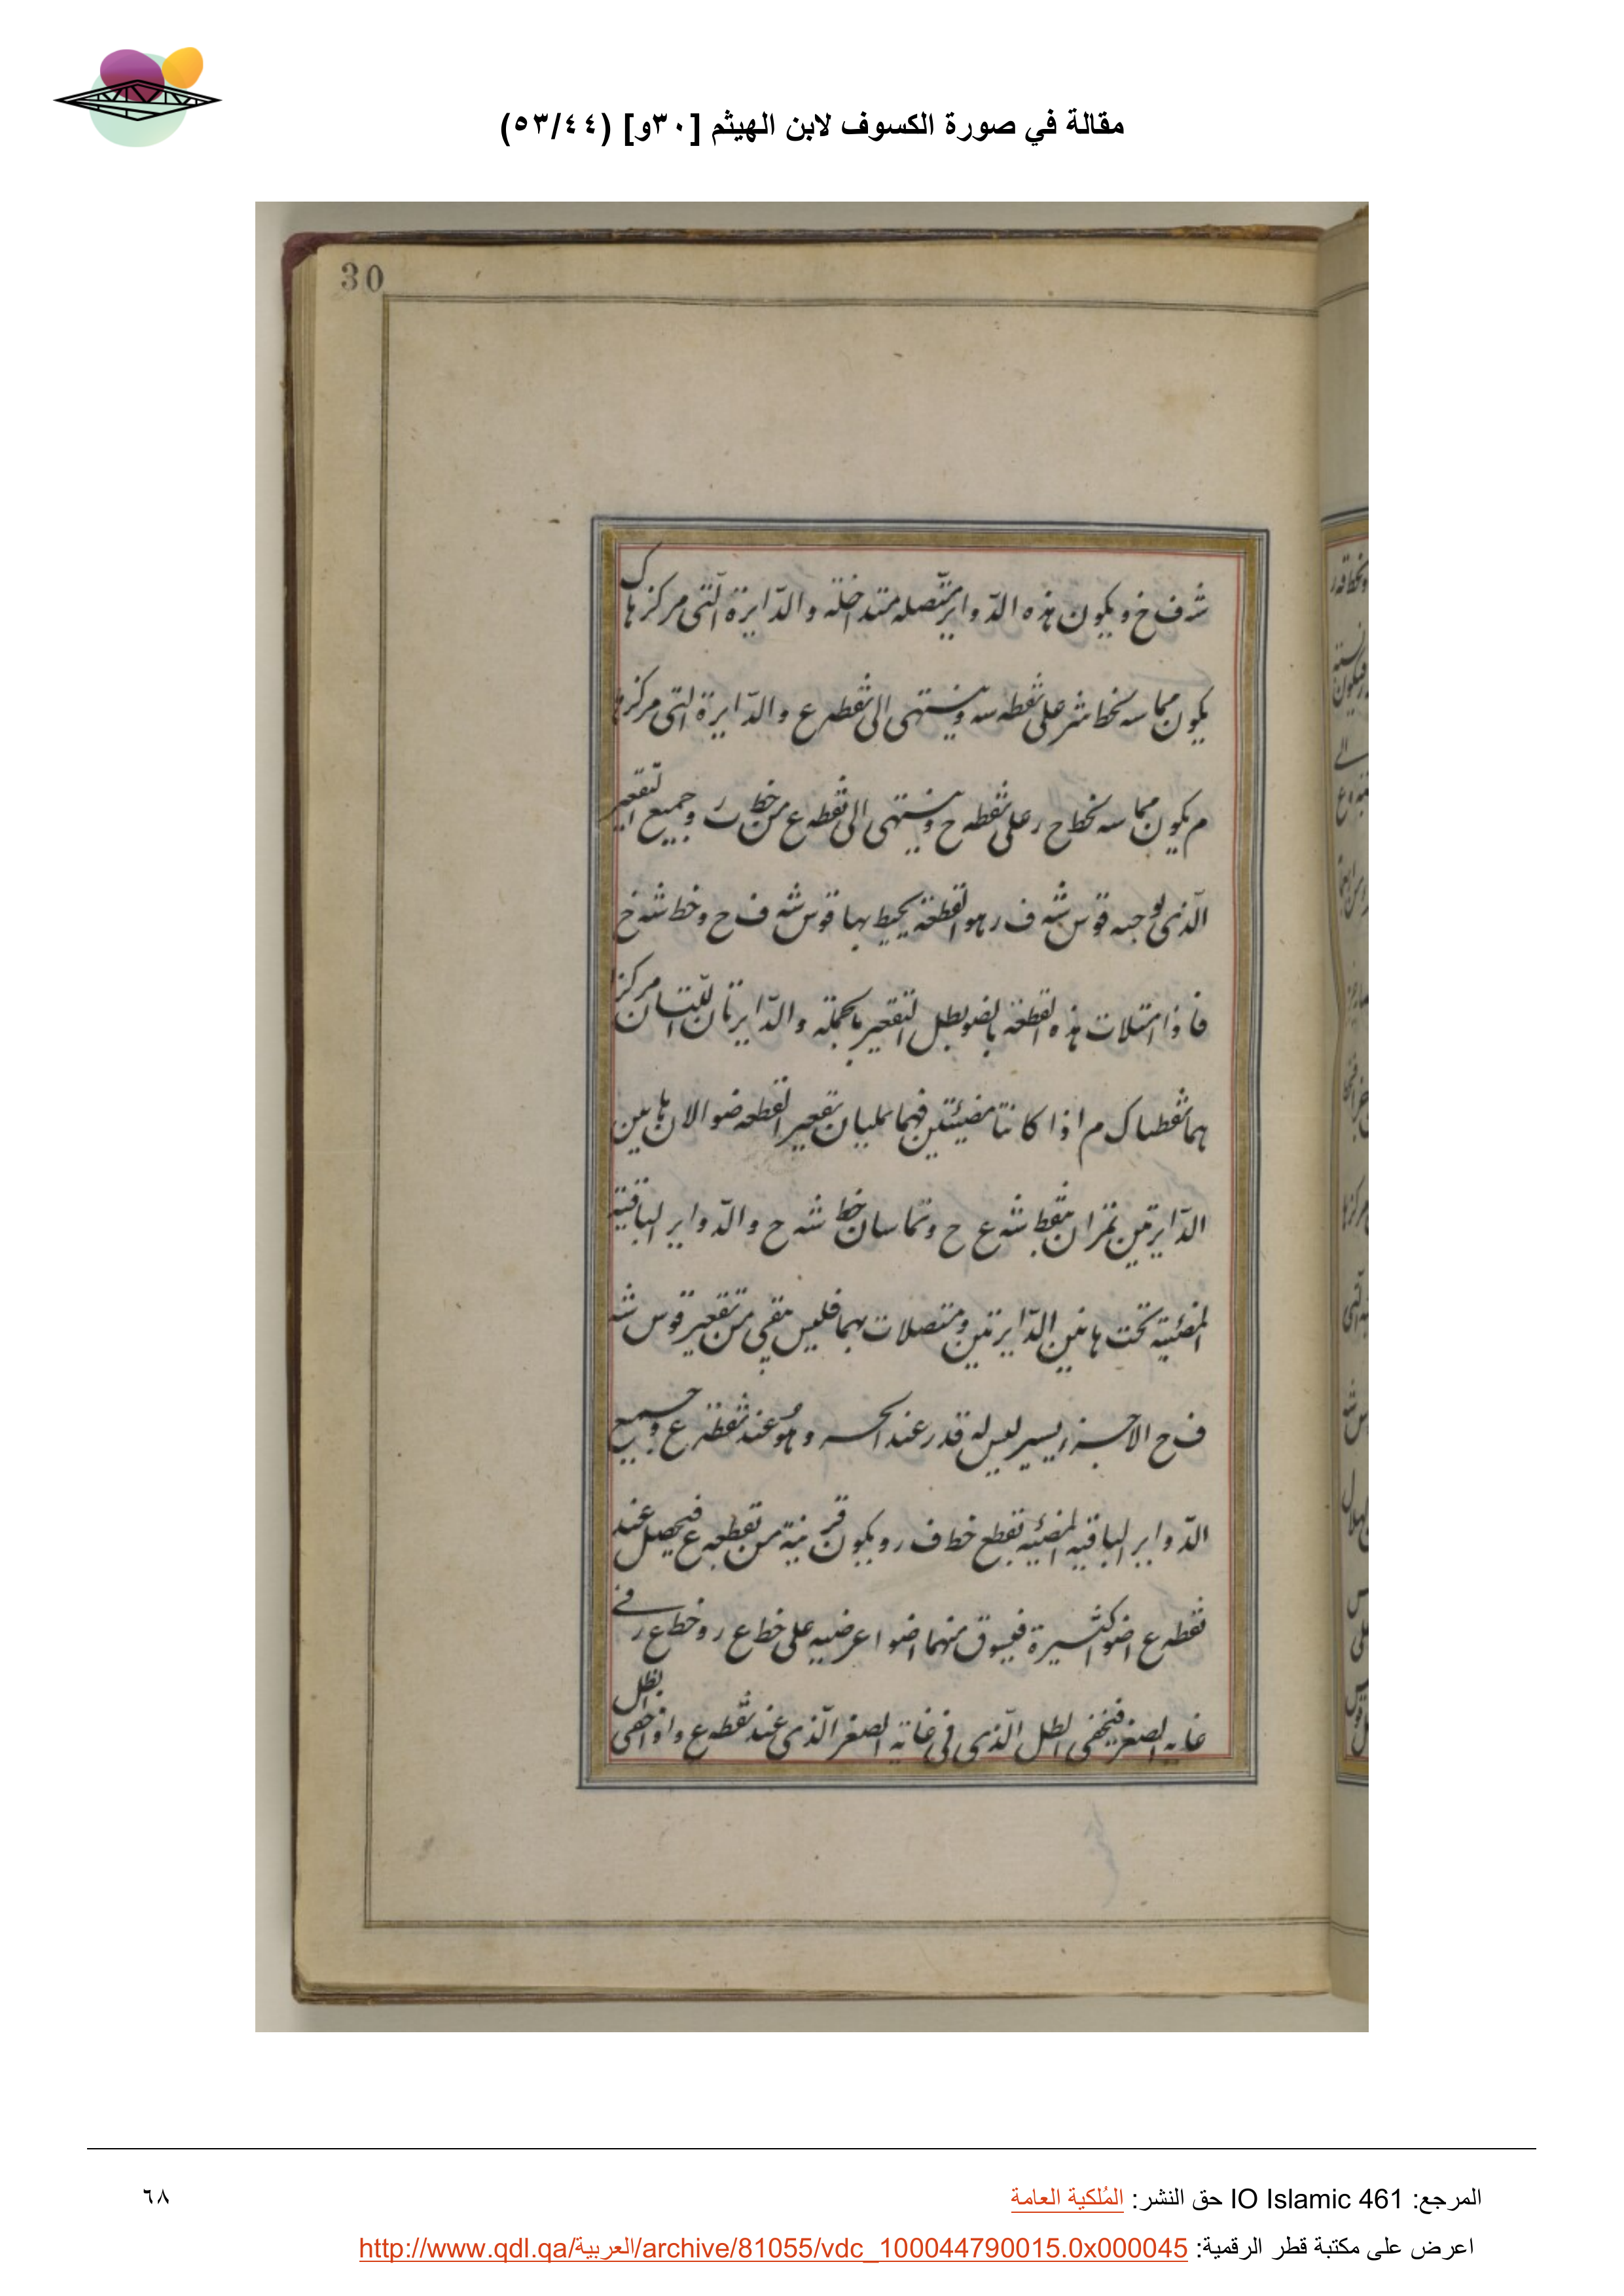 مقالة في صورة الكسوف لابن الهيثم [٣٠و] (٥٣/٤٤)
30
شه ف خ ويكون هذه الدّواير متّصله متداخله والدّايرة الّتى مركزها ك
يكون مماسه لخط شر على نقطه سه وينتهى الى نقطه ع والدّايرة الّتى مركزها
م يكون مماسه لخط ح ر على نقطه ح وينتهى الى نقطه ع من خط ر وجميع التّقعير
الّذى يوجبه قوس شه ف ر هو القطعة يحيط بها قوس شه ف ح وخط شه خ
فاذا امتلات هذه القطعة بالضو بطل التقعير بالجملة والدّايرتان اللّتان مركزا
هما نقطتا ك م اذا كانتا مضيئتين فهما يمليان تقعير القطعه ضوا لان هاتين
الدّايرتين تمران بنقط شه ع ح وتماسان خط شه ح والدّواير الباقية
المضئية تحت هاتين الدّايرتين ومتصلات بهما فليس يبقى من تقعير قوس شه
ف ح الا جزء يسير ليس له قدر عند الحس وهو عند نقطة ع وجميع
الدّواير الباقيه المضئيه تقطع خط ف ر ويكون قريبة من نقطه ع فيحصل عند
نقطه ع اضوا كثيرة فيسوق منهما اضوا عرضيه على خط ع ر وخط ع ر فى
غايه الصغر فيخفى الظل الّذى فى غاية الصغر الّذى عند نقطه ع واذا خفى الظل
المرجع: IO Islamic 461 حق النشر: المُلكية العامة
٦٨
اعرض على مكتبة قطر الرقمية: http://www.qdl.qa/العربية/archive/81055/vdc_100044790015.0x000045